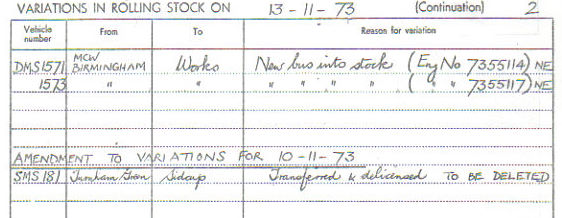 VARIATIONS IN ROLLING STOCK ON 13-11-73 (Continuation) 2
Vehicle number From To Reason for variation
DMS1571 MCW BIRMINGHAM Works New bus into stock (Eng No 7355114) NE
1573 " " " " " " ( " " 7355117) NE
AMENDMENT TO VARIATIONS FOR 10-11-73
SMS 181 Turnham Green Sidcup Transferred & delicensed TO BE DELETED